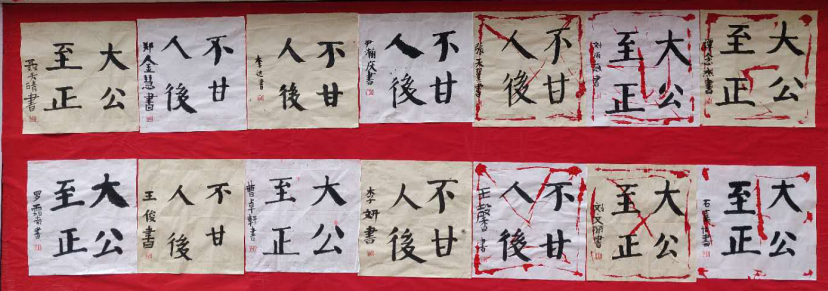 大公
至正
書
不甘
人後
郑金慧書
不甘
人後
李达書
不甘
人後
書
不甘
人後
書
大公
至正
書
大公
至正
大公
至正
書
不甘
人後
王俊書
大公
至正
曹卓軒書
不甘
人後
李妍書
不甘
人後
書
大公
至正
書
大公
至正
書